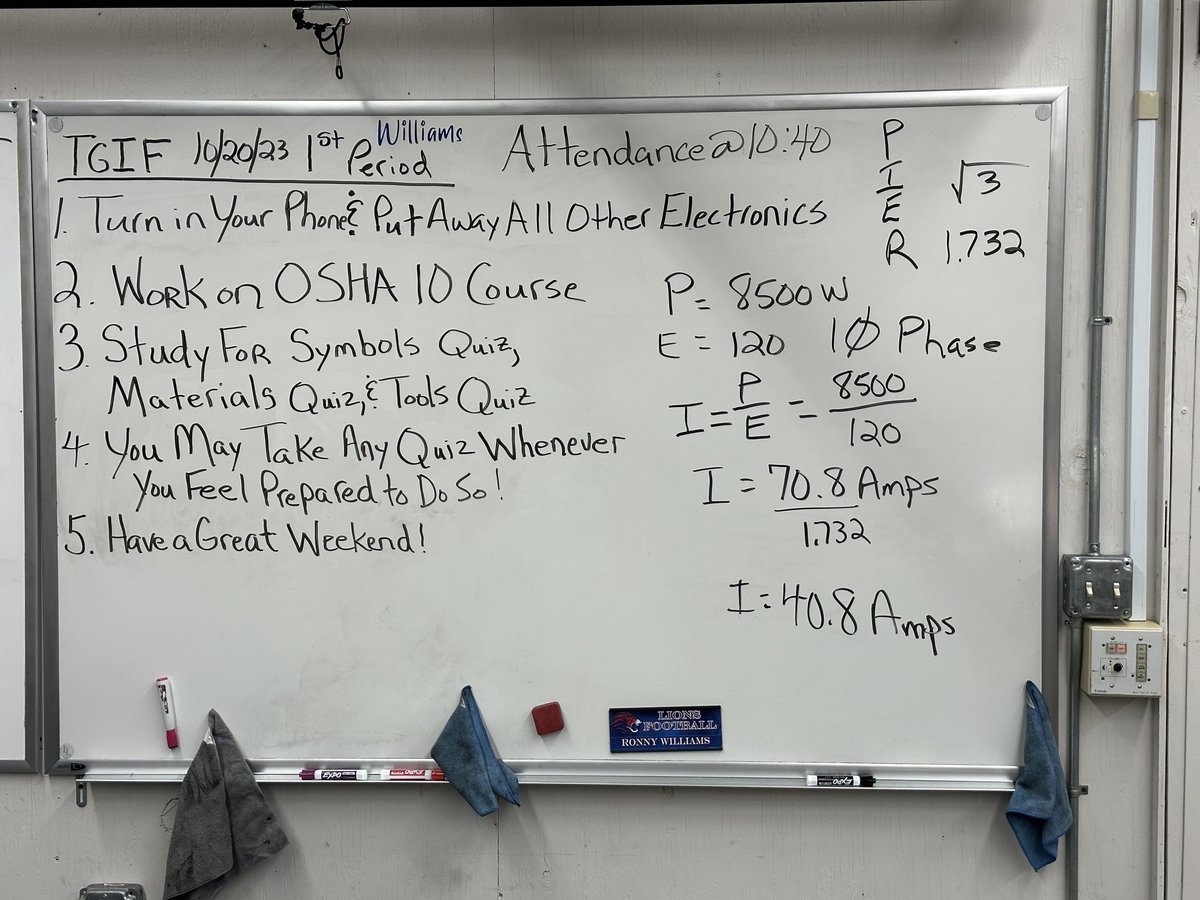 TGIF 10/20/23 1st Period Williams
Attendance@10:40
1. Turn in Your Phone & Put Away All Other Electronics
2. Work on OSHA 10 Course
3. Study For Symbols Quiz,
Materials Quiz, & Tools Quiz
4. You May Take Any Quiz Whenever
You Feel Prepared to Do So!
5. Have a Great Weekend!
P
I
E
R
√3
1.732
P= 8500W
E = 120 1Ø Phase
I = P/E = 8500/120
I = 70.8 Amps
1.732
I = 40.8 Amps
LIONS
FOOTBALL
RONNY WILLIAMS
EXPO
EXPO
EXPO